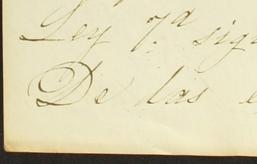 Ley 7.ª sig
De las e